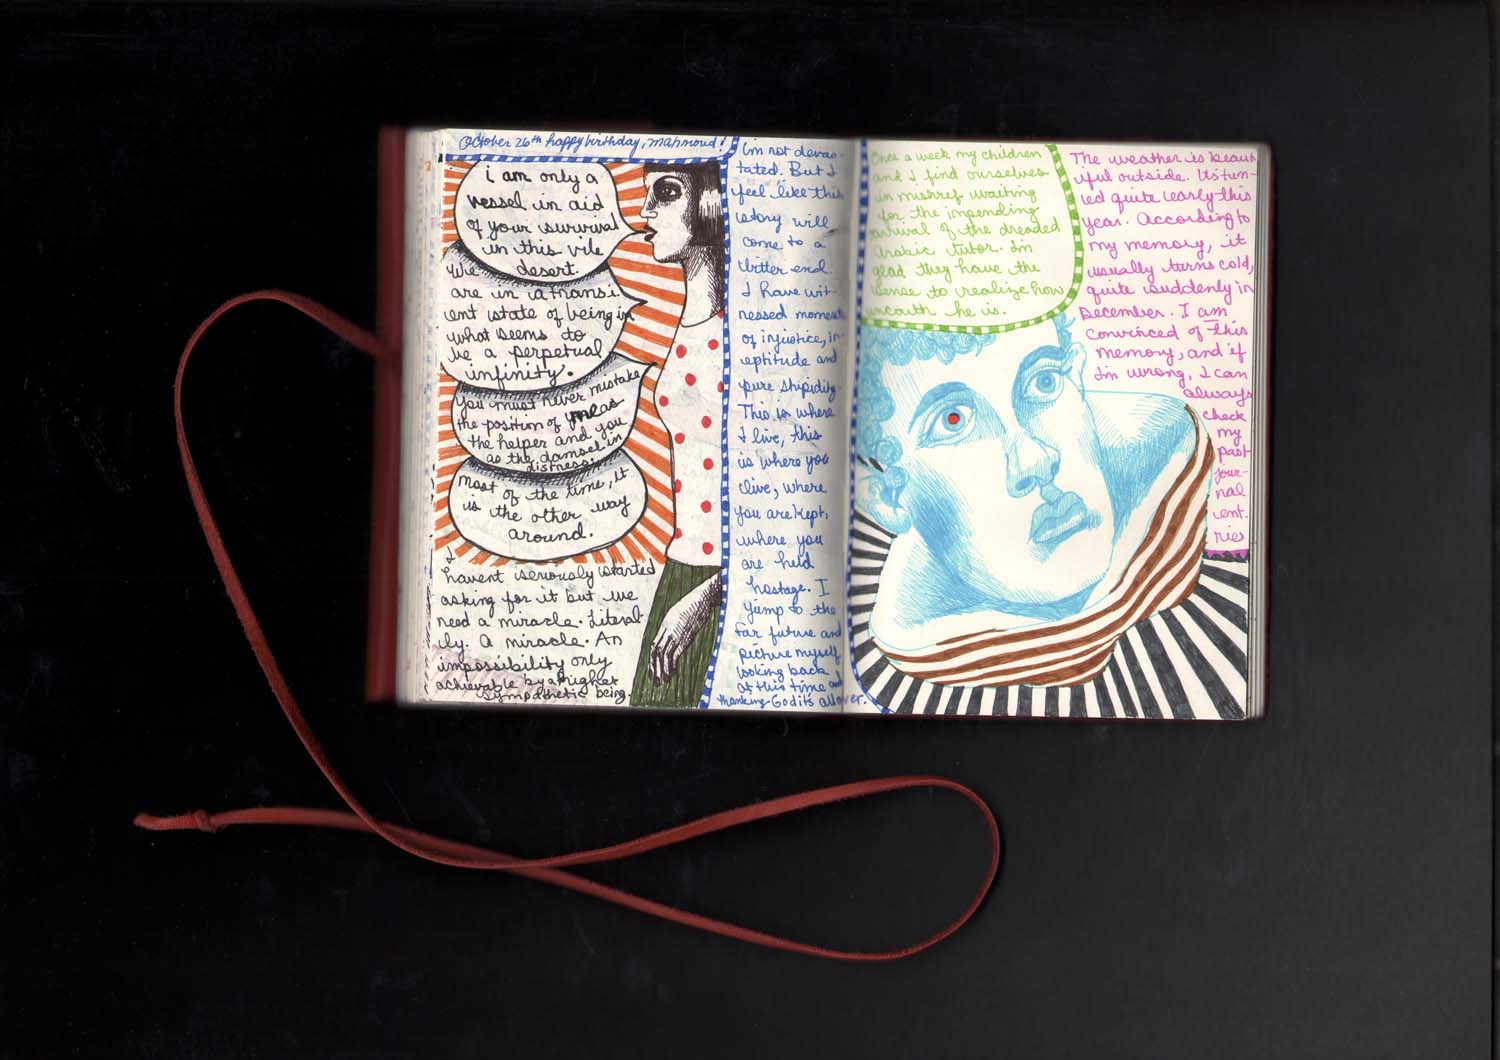 October 26th happy birthday, mahmoud!
i am only a
vessel in aid
of your survival
in this vile
desert.
We
are in a transi
ent state of being in
what seems to
be a perpetual
infinity.
you must never mistake
the position of me as
the helper and you
as the damsel in
distress.
most of the time, it
is the other way
around.
I
havent seriously started
asking for it but we
need a miracle. Literal
ly. A miracle. An
impossibility only
achievable by a higher
sympathetic being.
Im not devas-
tated. But I
feel like this
story will
come to a
bitter end.
I have wit-
nessed moments
of injustice, in-
eptitude and
pure stupidity.
This is where
I live, this
is where you
live, where
you are kept,
where you
are held
hostage. I
jump to the
far future and
picture myself
looking back
at this time and
thanking God its all over.
Once a week my children
and I find ourselves
in mishref waiting
for the impending
arrival of the dreaded
Arabic tutor. Im
glad they have the
sense to realize how
uncouth he is.
The weather is beaut
iful outside. Its turn-
ed quite early this
year. According to
my memory, it
usually turns cold,
quite suddenly in
December. I am
convinced of this
memory, and if
Im wrong, I can
always
check
my
past
jour-
nal
ent.
ries